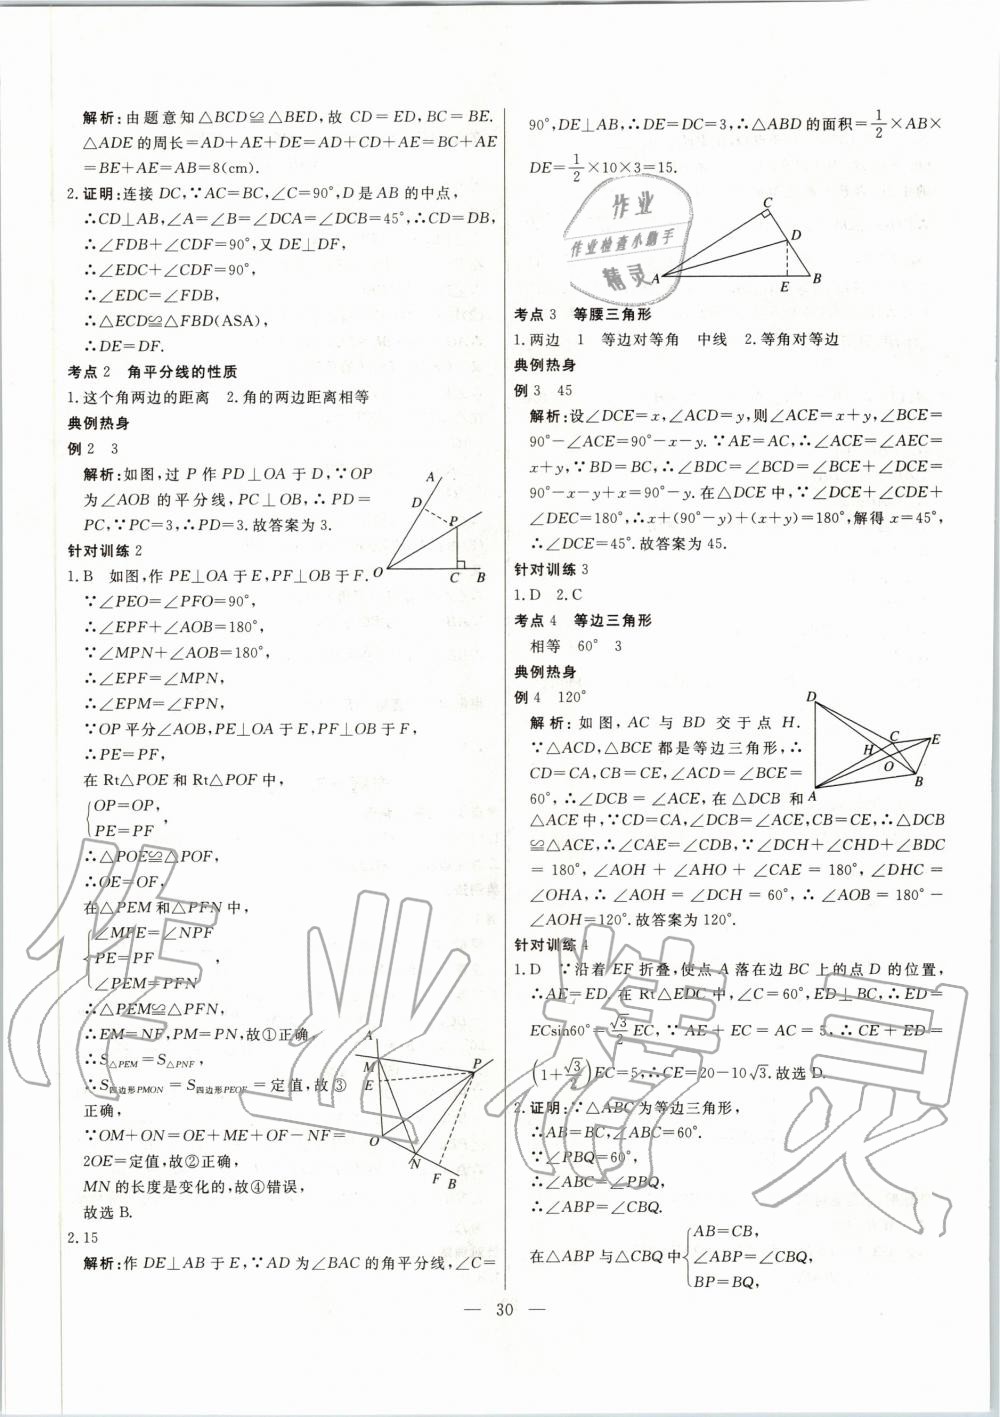 解析:由题意知△BCD≌△BED,故 CD=ED,BC=BE.
△ADE 的周长=AD+AE+DE=AD+CD+AE=BC+AE
=BE+AE=AB=8(cm).
2.证明:连接 DC,∵AC=BC,∠C=90°,D 是 AB 的中点,
∴CD⊥AB,∠A=∠B=∠DCA=∠DCB=45°,∴CD=DB,
∴∠FDB+∠CDF=90°,又 DE⊥DF,
∴∠EDC+∠CDF=90°,
∴∠EDC=∠FDB,
∴△ECD≌△FBD(ASA),
∴DE=DF.
考点 2 角平分线的性质
1.这个角两边的距离 2.角的两边距离相等
典例热身
例 2 3
解析:如图,过 P 作 PD⊥OA 于 D,∵OP
为∠AOB 的平分线,PC⊥OB,∴PD=
PC,∵PC=3,∴PD=3.故答案为 3.
A
D
P
O
C B
针对训练 2
1.B 如图,作 PE⊥OA 于 E,PF⊥OB 于 F.
∵∠PEO=∠PFO=90°,
∴∠EPF+∠AOB=180°,
∵∠MPN+∠AOB=180°,
∴∠EPF=∠MPN,
∴∠EPM=∠FPN,
∵OP 平分∠AOB,PE⊥OA 于 E,PF⊥OB 于 F,
∴PE=PF,
在 Rt△POE 和 Rt△POF 中,
{OP=OP,
PE=PF ,
∴△POE≌△POF,
∴OE=OF,
在△PEM 和△PFN 中,
{∠MPE=∠NPF
PE=PF ,
∠PEM=∠PFN
∴△PEM≌△PFN,
∴EM=NF,PM=PN,故①正确,
∴S△PEM=S△PNF,
∴S四边形PMON=S四边形PEOF=定值,故③
正确,
∵OM+ON=OE+ME+OF-NF=
2OE=定值,故②正确,
MN 的长度是变化的,故④错误,
故选 B.
A
M
E
P
O
N
F B
2.15
解析:作 DE⊥AB 于 E,∵AD 为∠BAC 的角平分线,∠C=
90°,DE⊥AB,∴DE=DC=3,∴△ABD 的面积=1/2×AB×
DE=1/2×10×3=15.
C
D
A
E B
考点 3 等腰三角形
1.两边 1 等边对等角 中线 2.等角对等边
典例热身
例 3 45
解析:设∠DCE=x,∠ACD=y,则∠ACE=x+y,∠BCE=
90°-∠ACE=90°-x-y.∵AE=AC,∴∠ACE=∠AEC=
x+y,∵BD=BC,∴∠BDC=∠BCD=∠BCE+∠DCE=
90°-x-y+x=90°-y.在△DCE 中,∵∠DCE+∠CDE+
∠DEC=180°,∴x+(90°-y)+(x+y)=180°,解得 x=45°,
∴∠DCE=45°.故答案为 45.
针对训练 3
1.D 2.C
考点 4 等边三角形
相等 60° 3
典例热身
例 4 120°
解析:如图,AC 与 BD 交于点 H.
∵△ACD,△BCE 都是等边三角形,∴
CD=CA,CB=CE,∠ACD=∠BCE=
60°,∴∠DCB=∠ACE,在△DCB 和
△ACE 中,∵CD=CA,∠DCB=∠ACE,CB=CE,∴△DCB
≌△ACE,∴∠CAE=∠CDB,∵∠DCH+∠CHD+∠BDC
=180°,∠AOH+∠AHO+∠CAE=180°,∠DHC=
∠OHA,∴∠AOH=∠DCH=60°,∴∠AOB=180°-
∠AOH=120°.故答案为 120°.
D
C
E
H
O
B
A
针对训练 4
1.D ∵沿着 EF 折叠,使点 A 落在边 BC 上的点 D 的位置,
∴AE=ED.在 Rt△EDC 中,∠C=60°,ED⊥BC,∴ED=
ECsin60°=√3/2 EC,∵AE+EC=AC=5,∴CE+ED=
(1+√3/2)EC=5,∴CE=20-10√3.故选 D.
2.证明:∵△ABC 为等边三角形,
∴AB=BC,∠ABC=60°.
∵∠PBQ=60°,
∴∠ABC=∠PBQ,
∴∠ABP=∠CBQ.
在△ABP 与△CBQ 中{AB=CB,
∠ABP=∠CBQ,
BP=BQ,
— 30 —
作业
作业检查小助手
精灵
作业精灵